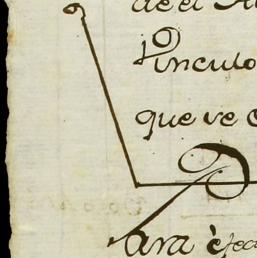 de el
Vinculo
que ve
Para efec